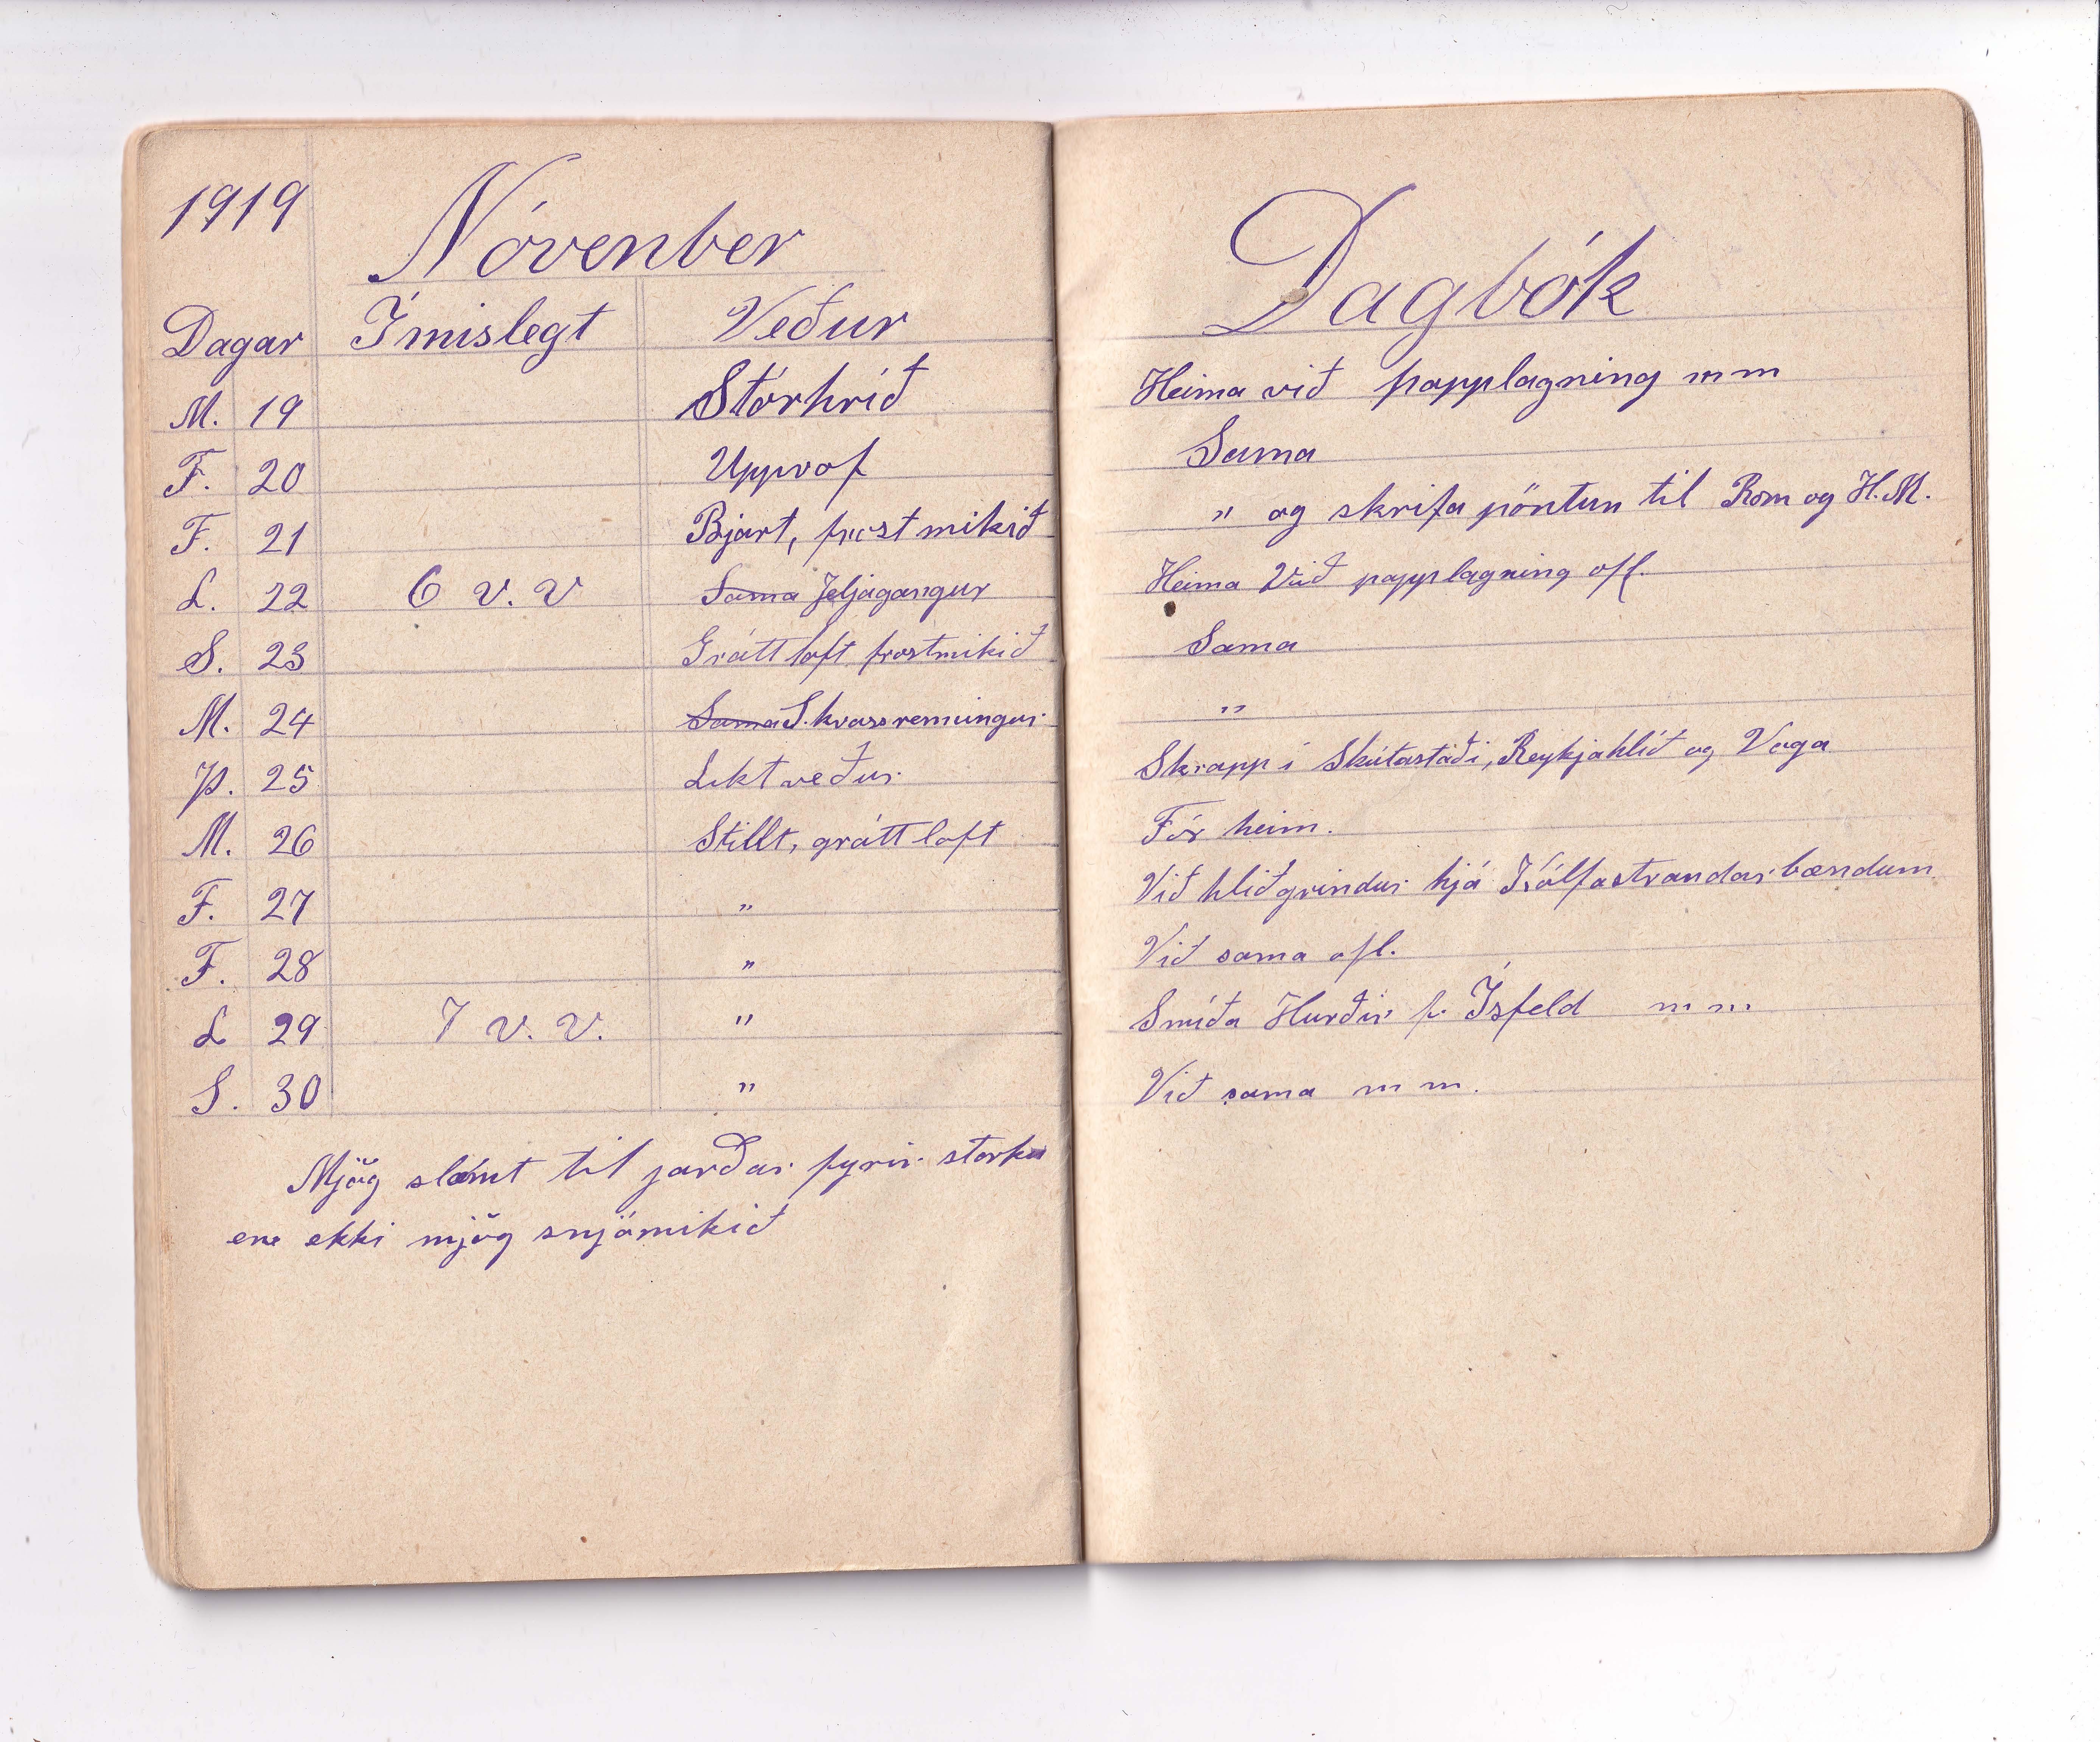 1919
Nóvenber
Dagar Ímislegt Veður
M. 19 Stórhríð
F. 20 Upprof
F. 21 Bjart, frost mikið
L. 22 6 V. V Sama Jeljagangur
S. 23 Grátt loft frostmikið
M. 24 Sama S. hvassrenningur
Þ. 25 Líkt veður
M. 26 Stillt, grátt loft
F. 27 "
F. 28 "
L 29 7 V. V. "
S. 30 "
Mjög slæmt til jarðar fyrir storku
en ekki mjög snjómikið
Dagbók
Heima við papplagning m m
Sama
" og skrifa pöntun til Rom og H. M.
Heima Við papplagning ofl.
Sama
"
Skrapp í Skútastaði, Reykjahlíð og Voga
Fór heim.
Við hliðgrindur hjá Kálfastrandar bændum
Við sama ofl.
Smíða Hurðir f. Ísfeld m m
Við sama m m.